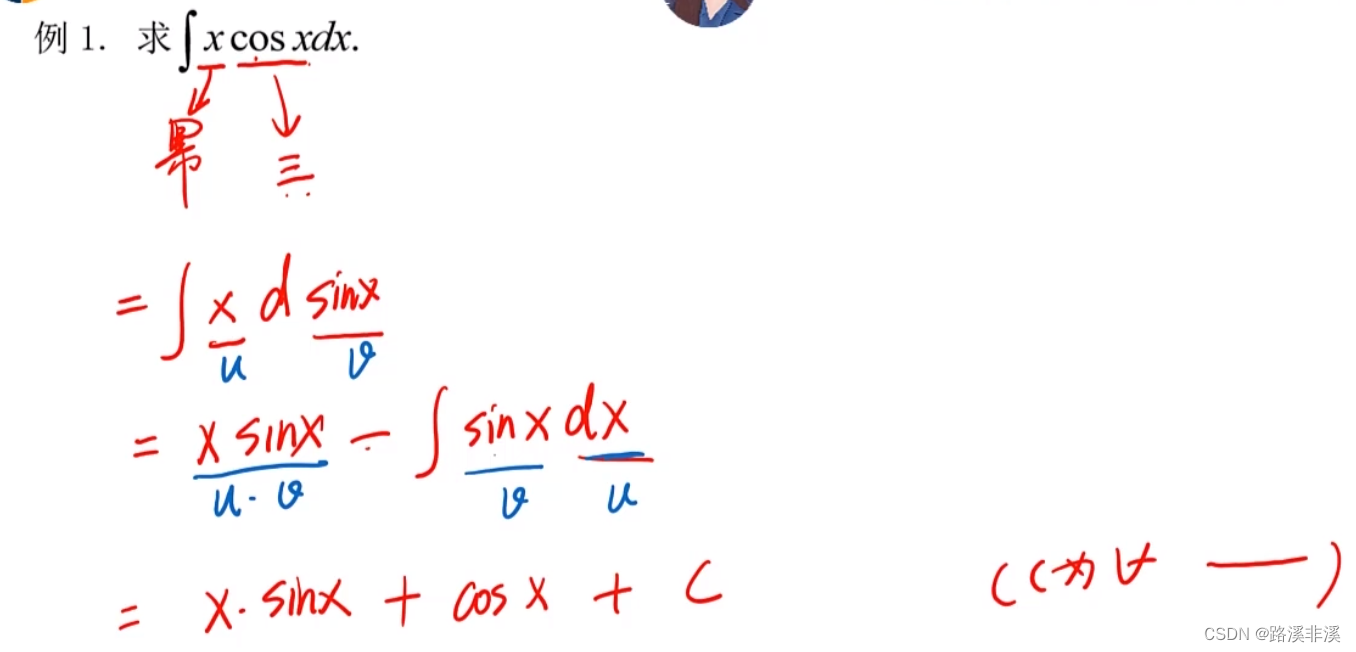 例 1. 求∫x cos xdx.
幂 三
= ∫ x d sinx
u v
= x sinx - ∫ sinx dx
u · v v u
= x · sinx + cosx + C
CSDN @路溪非溪